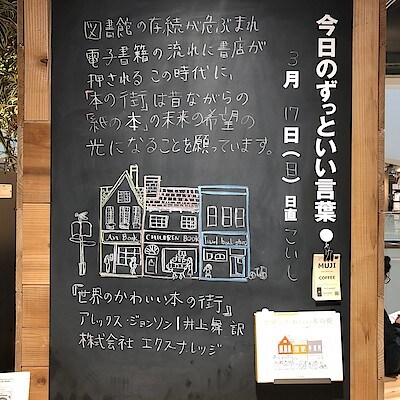 今日のずっといい言葉●
3月17日(日) 日直 こいし
図書館の存続が危ぶまれ
電子書籍の流れに書店が
押されるこの時代に、
「本の街」は昔ながらの
「紙の本」の未来の希望の
光になることを願っています。
Art Book
CHILDREN BOOK
『世界のかわいい本の街』
アレックス・ジョンソン|井上舞 訳
株式会社 エクスナレッジ
MUJI
COFFEE